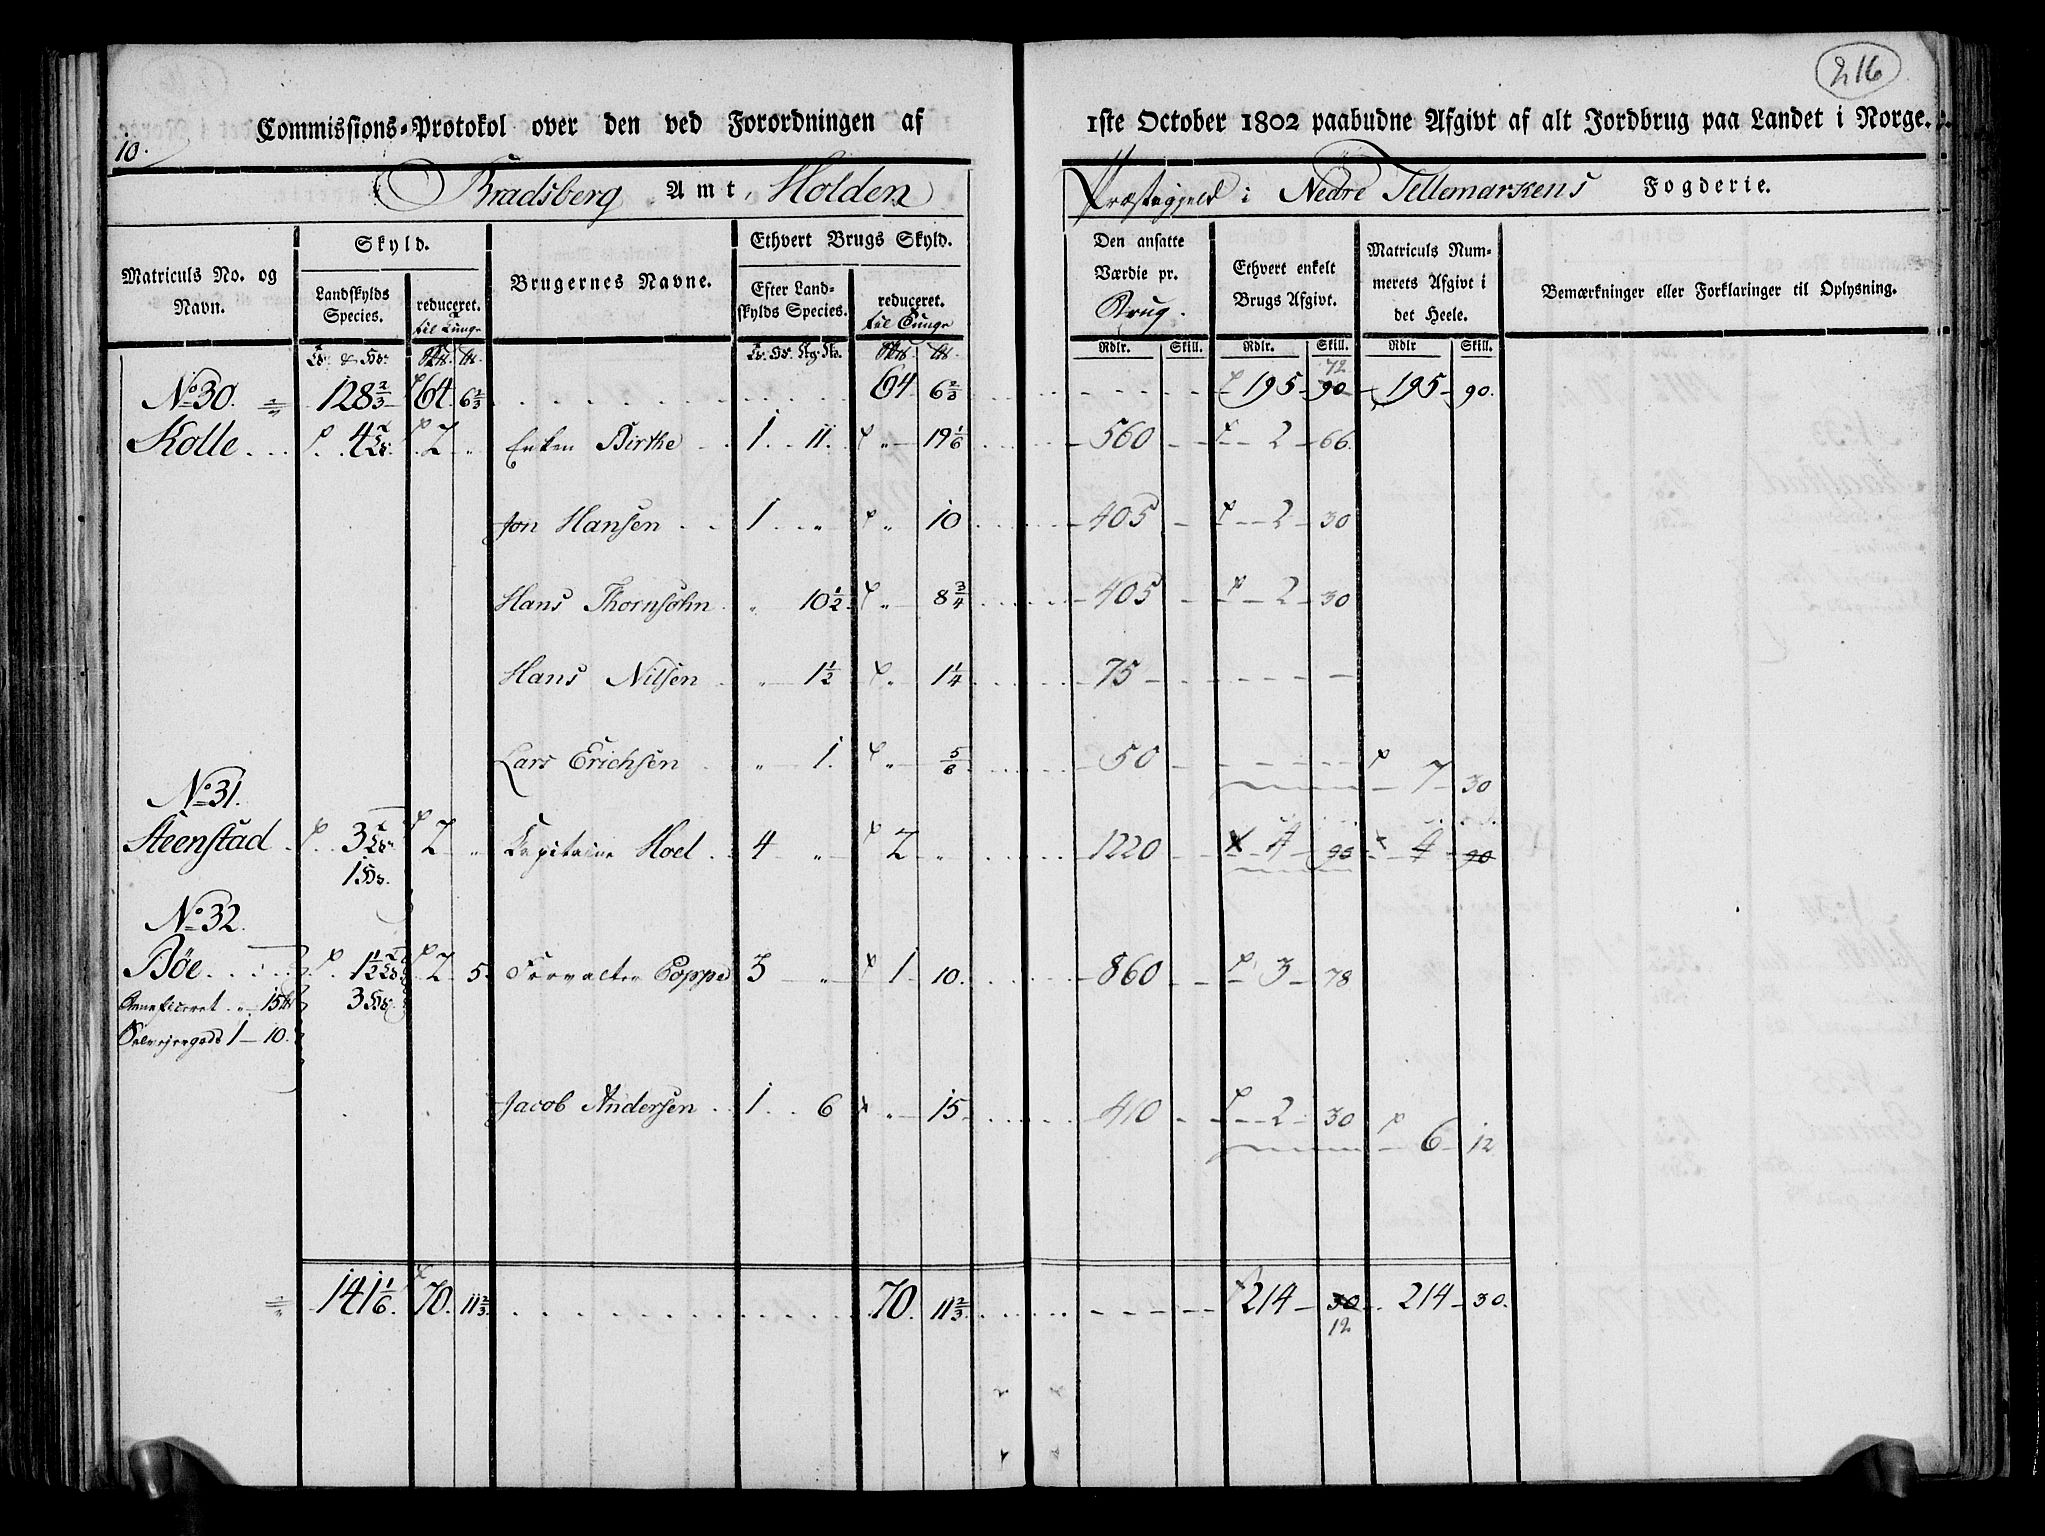 216
Commissions-Protokol over den ved Forordningen af 1ste October 1802 paabudne Afgivt af alt Jordbrug paa Landet i Norge.
10.
Bradsberg Amt, Holden Præstegjeld i Nedre Tellemarkens Fogderie.
Matriculs No. og Navn.
Skyld.
Landskylds Species.
reduceret. til Tunge
Brugernes Navne.
Ethvert Brugs Skyld.
Efter Landskylds Species.
reduceret. til Tunge
Den ansatte Værdie pr. Brug.
Ethvert enkelt Brugs Afgivt.
Matriculs Nummerets Afgivt i det Heele.
Bemærkninger eller Forklaringer til Oplysning.
Rdlr. Skill. Rdlr. Skill. Rdlr Skill.
72
No 30. 128 2/3 64. 6 2/3 64 6 2/3 195 90 195 90.
Kolle 4 2 Enken Birthe 1 11. 19 1/6 560 2 66.
Jon Hansen 1 10 405 2 30
Hans Thornsøhn 10 1/2 8 3/4 405 2 30
Hans Nilsen 1 1/2 1 1/4 75
Lars Erichsen 1. 5/6 50 7 30
No 31.
Steenstad 3 2 Capitaine Hoel 4 2 1220 4 90 4 90
1
No 32.
Bøe 1 1/2 2 5 Forvalter Poppe 3 1 10. 860 3 78
15 3
1 10.
Jacob Andersen 1 6 15 410 2 30 6 12
141 1/6. 70. 11 2/3 70. 11 2/3 214 30 214 30.
12